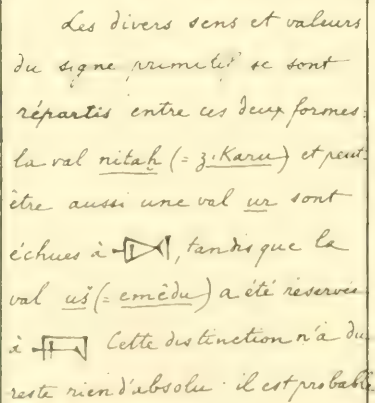 Les divers sens et valeurs
du signe primitif se sont
répartis entre ces deux formes:
la val nitaḫ (= zikaru) et peut-
être aussi une val ur sont
échues à, tandis que la
val uš (= emêdu) a été réservée
à Cette distinction n'a du
reste rien d'absolu. il est probable